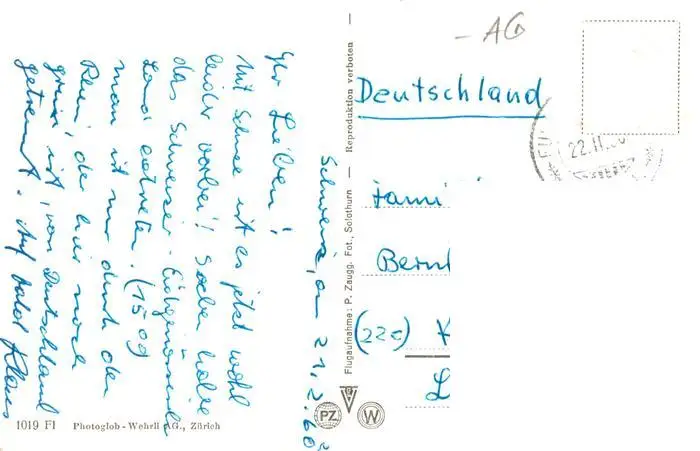 Schweiz, am 21.2.60
Ihr Lieben!
Mit Schnee ist es jetzt wohl
leider vorbei! Soeben habe
das Schweizer-Eidgenössische
Land betreten. (1509)
man ist nur durch den
Rhein, der hier noch
grün ist, von Deutschland
getrennt. Auf bald Klaus
- AG
Deutschland
22.II.60
Fami
Bern
(22c) K
L
Flugaufnahme: P. Zaugg. Fot., Solothurn — Reproduktion verboten —
PZ
W
1019 FI Photoglob-Wehrli AG., Zürich